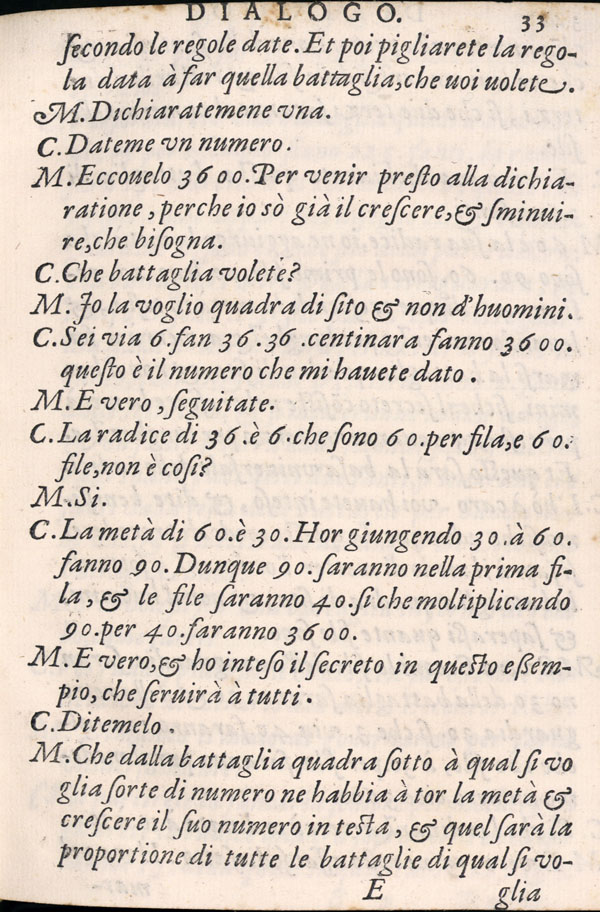 DIALOGO. 33
ſecondo le regole date. Et poi pigliarete la rego-
la data à far quella battaglia, che uoi uolete.
M. Dichiaratemene vna.
C. Dateme vn numero.
M. Eccouelo 3600. Per venir preſto alla dichia-
ratione, perche io sò già il creſcere, & ſminui-
re, che biſogna.
C. Che battaglia voleté?
M. Io la voglio quadra di ſito & non d'huomini.
C. Sei via 6. fan 36. 36. centinara fanno 3600.
queſto è il numero che mi hauete dato.
M. E vero, ſeguitate.
C. La radice di 36. è 6. che ſono 60. per fila, e 60.
file, non è coſi?
M. Si.
C. La metà di 60. è 30. Hor giungendo 30. à 60.
fanno 90. Dunque 90. ſaranno nella prima fi-
la, & le file ſaranno 40. ſi che moltiplicando
90. per 40. faranno 3600.
M. E vero, & ho inteſo il ſecreto in queſto eßem-
pio, che ſeruirà à tutti
C. Ditemelo.
M. Che dalla battaglia quadra ſotto à qual ſi vo
glia ſorte di numero ne habbia à tor la metà &
creſcere il ſuo numero in teſta, & quel ſarà la
proportione di tutte le battaglie di qual ſi vo-
E glia